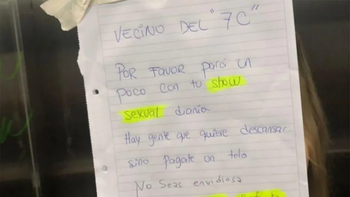 VECINO DEL "7C"
POR FAVOR pará un
poco con tu show
sexual diario
Hay gente que quiere descansar
sino pagate un telo
No seas envidiosa